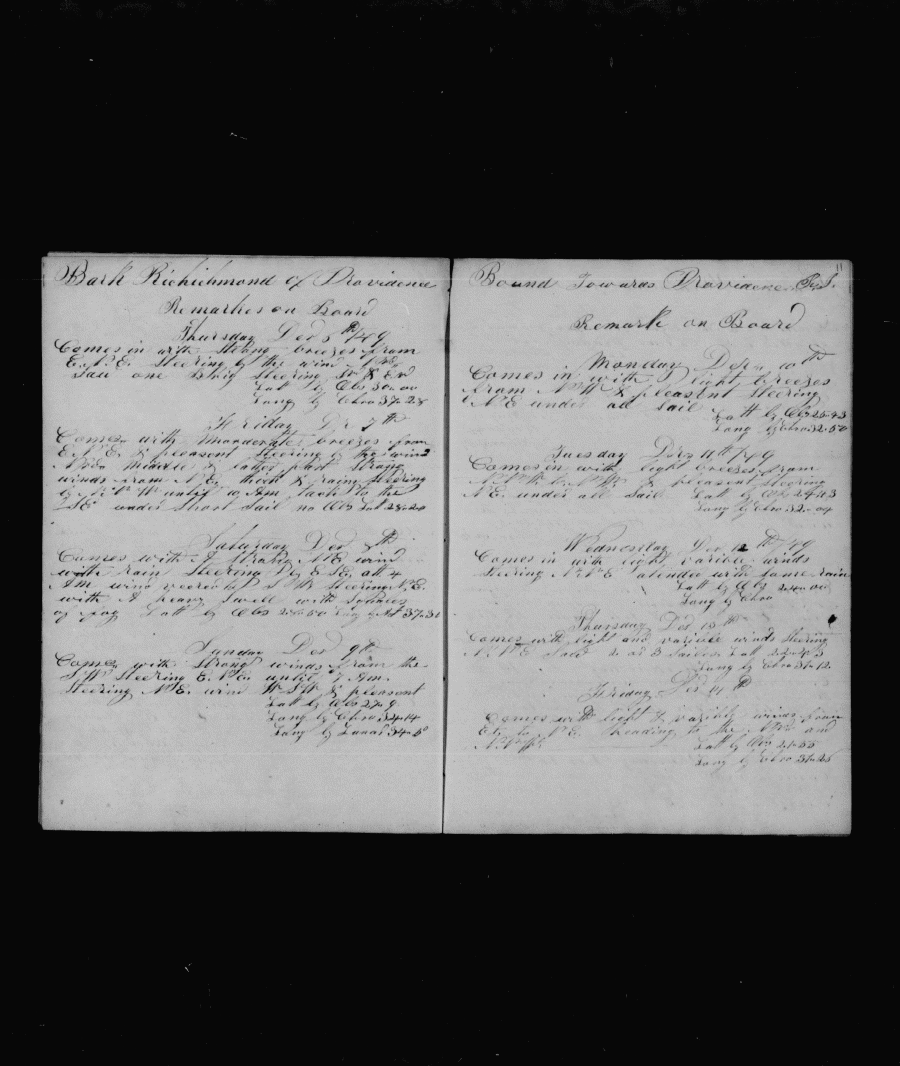 Bark Richichmond of Providence
Remarkes on Board
Thursday Dec 6th /49
Comes in with Strong breezes from
E.N.E. Steering by the wind
Saw one Brig Steering
Latt by Obs 30=00
Long by Chro 37=28
Friday Dec 7th
Comes with Moorderate breezes from
E.N.E. & pleasent Steering by the wind
Middle & latter part Strong
winds from N.E. thick & rainy Steering
by N.N.W until 10 Am tack to the
S.E under Short Sail no Obs Lat 28=20
Saturday Dec 8th
Comes with A Strong N.E wind
with rain Steering by E S.E. att 4
Am wind veered to S.W Steering N.E.
with A heavy Swell with Squales
of fog Latt by Obs Long by Act 37=30
Sunday Dec 9th
Comes with Strong winds from the
S.W Steering E. N.E. until 7 Am.
Steering N.E. wind W.S.W & pleasent
Latt by Obs 27=9
Long by Chro 34=14
Long by Lunar 34=5
11
Bound Towards Providence R.I.
Remark on Board
Monday Dec 10th
Comes in with light breezes
from & pleasent Steering
N.E under all Sail
Latt by Obs 25=43
Long by Chro 32=50
Tuesday Dec 11th /49
Comes in with light breezes from
& pleasent Steering
N.E. under all Sail Latt by Obs 24=43
Long by Chro 32=04
Wednesday Dec 12th /49
Comes in with light varible winds
Steering N.N.E atended with some rain
Latt by Obs 24=00
Long by Chro
Thursday Dec 13th
Comes with light and varible winds Steering
N.N.E Saw 2 or 3 Sailes Latt
Long by Chro 31=12
Friday Dec 14th
Comes with light & varible winds from
to N.E. heading to the and
N.N.W. Latt by Obs 21=53
Long by Chro 31=25